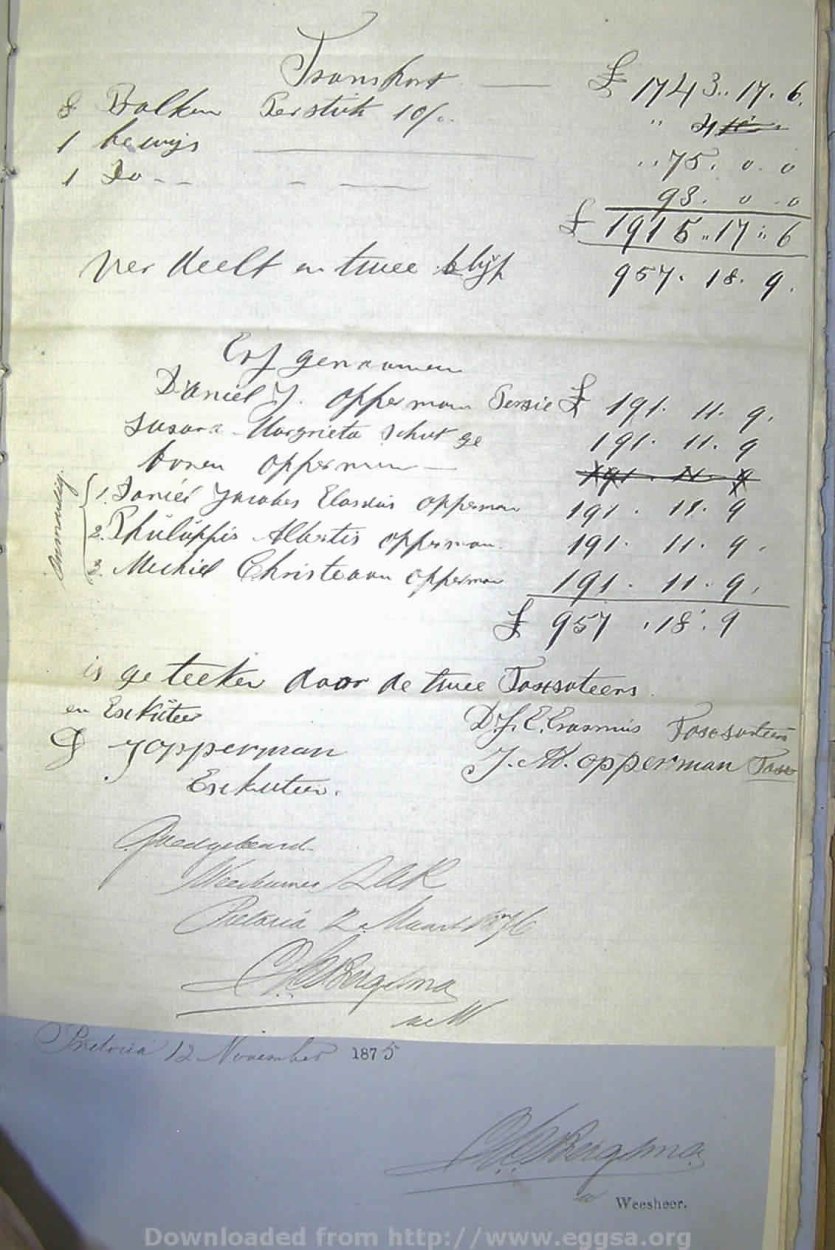 Transport — £ 1743.. 17. 6.
8 Balken Per stuk 10/-. " 4
1 bewys — .. 75. 0. 0
1 Do - - - — 93. 0. 0
£ 1915.. 17 : 6
Ver deelt en twee blijf 957. 18. 9.
Erf genaamen
Daniel J. opperman Sensie £ 191. 11. 9.
Susara Margrieta Schut ge 191. 11. 9
boren opperman —
Onmondig.
1. Daniel Jacobus Elardus opperman 191. 11. 9
2. Philippis Albertis opperman 191. 11. 9.
3. Mechiel Christeaan opperman 191. 11. 9.
£ 957 . 18 . 9
is ge teeken door de twee Taxsateens
en Exkuteer D. J. E. Erasmus Taxsateens
D J opperman J. M. opperman Taxs
Exkuteur.
Goedgekeurd
Weeskamer ZAR
Pretoria 12 Maart 1876
Bergsma
Pretoria 12 November 1875
Bergsma
Weesheer.
Downloaded from http://www.eggsa.org